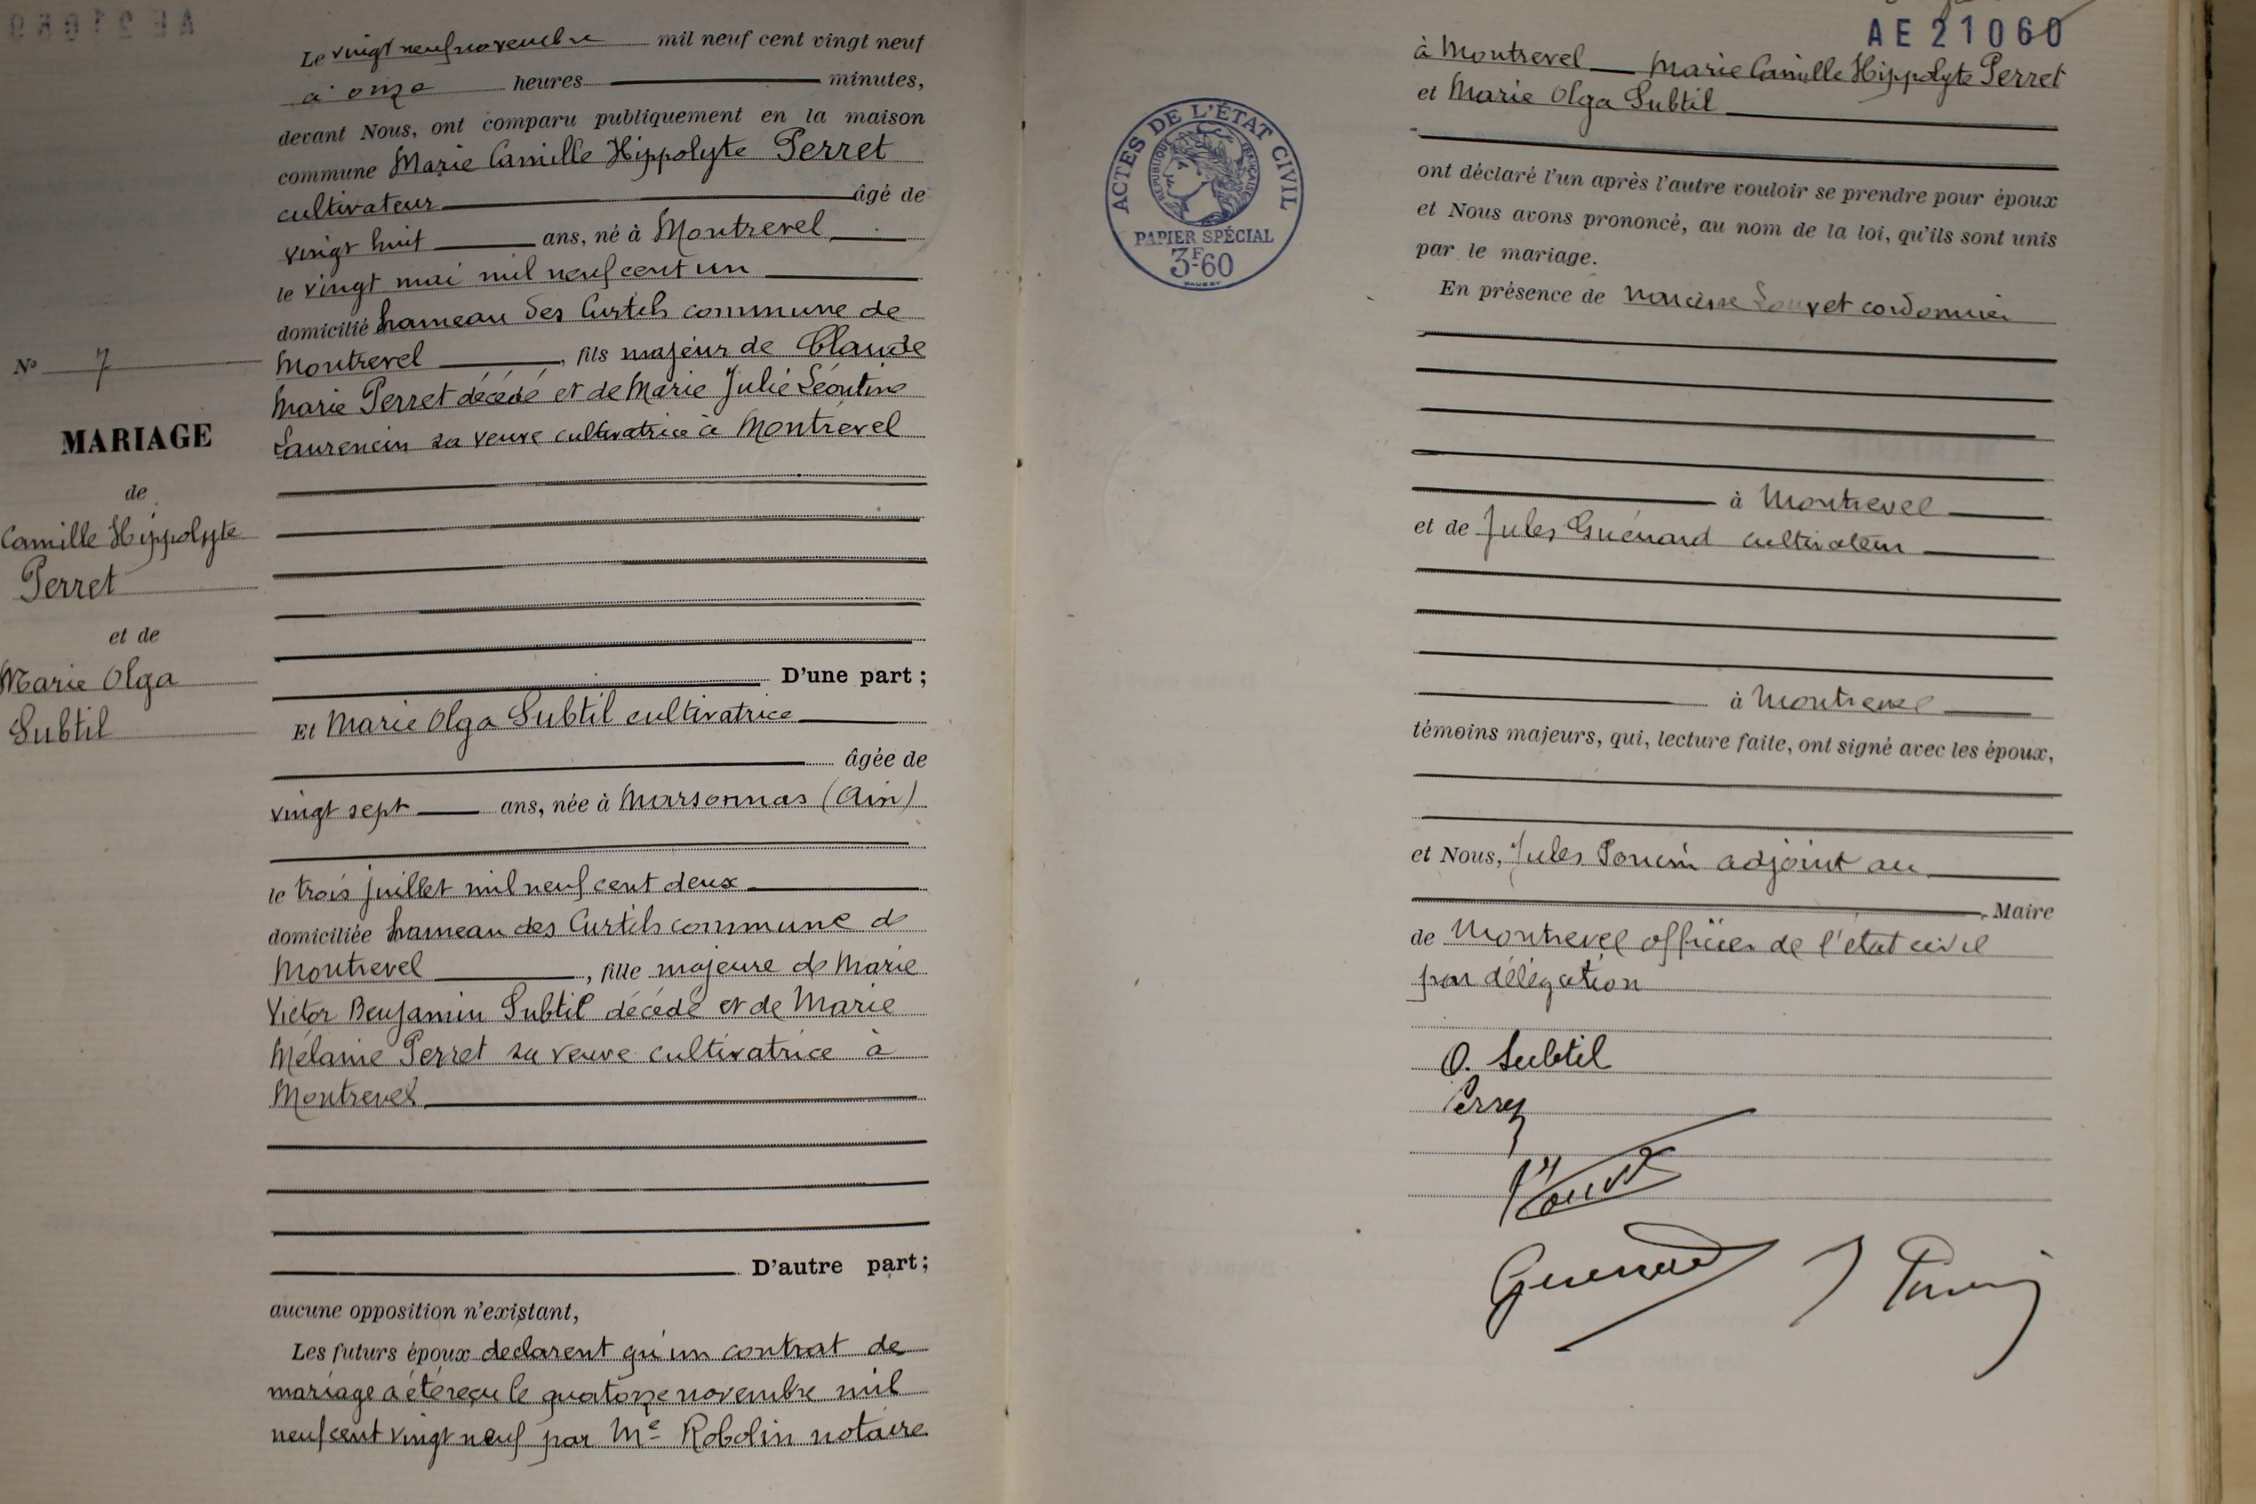 Le vingt neuf novembre mil neuf cent vingt neuf
à onze heures minutes,
devant Nous, ont comparu publiquement en la maison
commune Marie Camille Hippolyte Perret
cultivateur âgé de
vingt huit ans, né à Montrevel
le vingt mai mil neuf cent un
domicilié hameau des Curtils commune de
Montrevel, fils majeur de Claude
Marie Perret décédé et de Marie Julie Léontine
Laurencin sa veuve cultivatrice à Montrevel
D'une part ;
Et Marie Olga Subtil cultivatrice
âgée de
vingt sept ans, née à Marsonnas (Ain)
le trois juillet mil neuf cent deux
domiciliée hameau des Curtils commune d
Montrevel, fille majeure d Marie
Victor Benjamin Subtil décédé et de Marie
Mélanie Perret sa veuve cultivatrice à
Montrevel
D'autre part ;
aucune opposition n'existant,
Les futurs époux declarent qu'un contrat de
mariage a été reçu le quatorze novembre mil
neuf cent vingt neuf par Me Robolin notaire
No 7
MARIAGE
de
Camille Hippolyte
Perret
et de
Marie Olga
Subtil
AE 21060
à Montrevel Marie Camille Hippolyte Perret
et Marie Olga Subtil
ont déclaré l'un après l'autre vouloir se prendre pour époux
et Nous avons prononcé, au nom de la loi, qu'ils sont unis
par le mariage.
En présence de cordonnier
à Montrevel
et de Jules Guénard cultivateur
à Montrevel
témoins majeurs, qui, lecture faite, ont signé avec les époux,
et Nous, Jules adjoint au
Maire
de Montrevel officier de l'état civil
par délégation
O. Subtil
Perret
Guenard
ACTES DE L'ÉTAT CIVIL
RÉPUBLIQUE FRANÇAISE
PAPIER SPÉCIAL
3F60